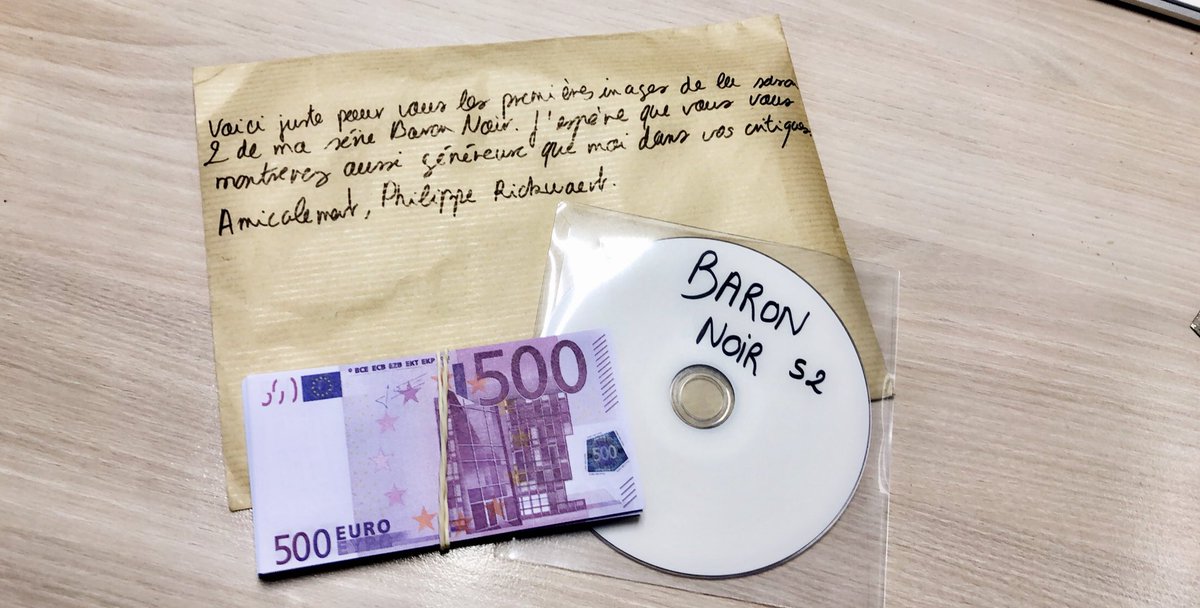 Voici juste pour vous les premières images de la saison
2 de ma série Baron Noir. J'espère que vous vous
montrerez aussi généreux que moi dans vos critiques.
Amicalement, Philippe Rickwaert.
BARON
NOIR S2
BCE ECB EZB EKT EKP
500
500
500 EURO
ΕΥΡΩ